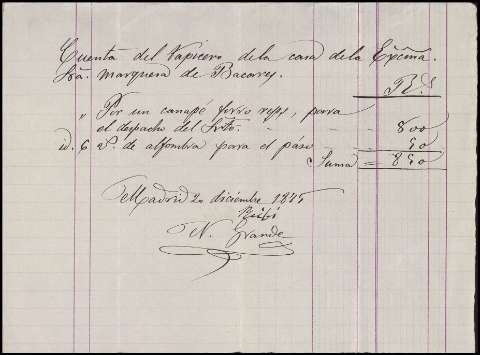 Cuenta del Tapicero de la casa de la Excma.
Sra. marquesa de Bacares.
Rs
" Por un canapé forro reps, para
el despacho del Srto. - - - 800
id. 6 vs. de alfombra para el paso - - 50
Suma = 850
Madrid 20 diciembre 1875
Recibí
N. Grande